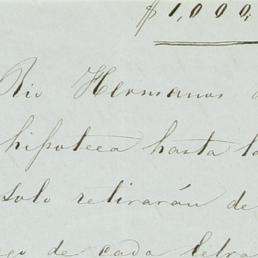 $1,000
Rio Hermanos
hipoteca hasta la
solo retirarán de
de cada letra